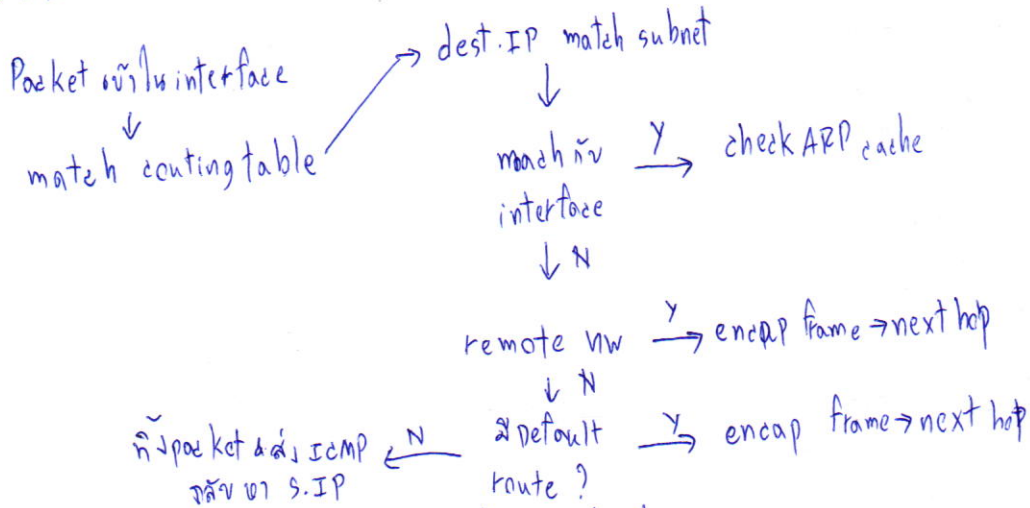 Packet เข้าใน interface
match routing table
dest.IP match subnet
match กับ Y check ARP cache
interface
N
remote nw Y encap frame → next hop
N
มี Default Y encap frame → next hop
route ?
N
ทิ้ง packet & ส่ง ICMP
กลับ หา S.IP